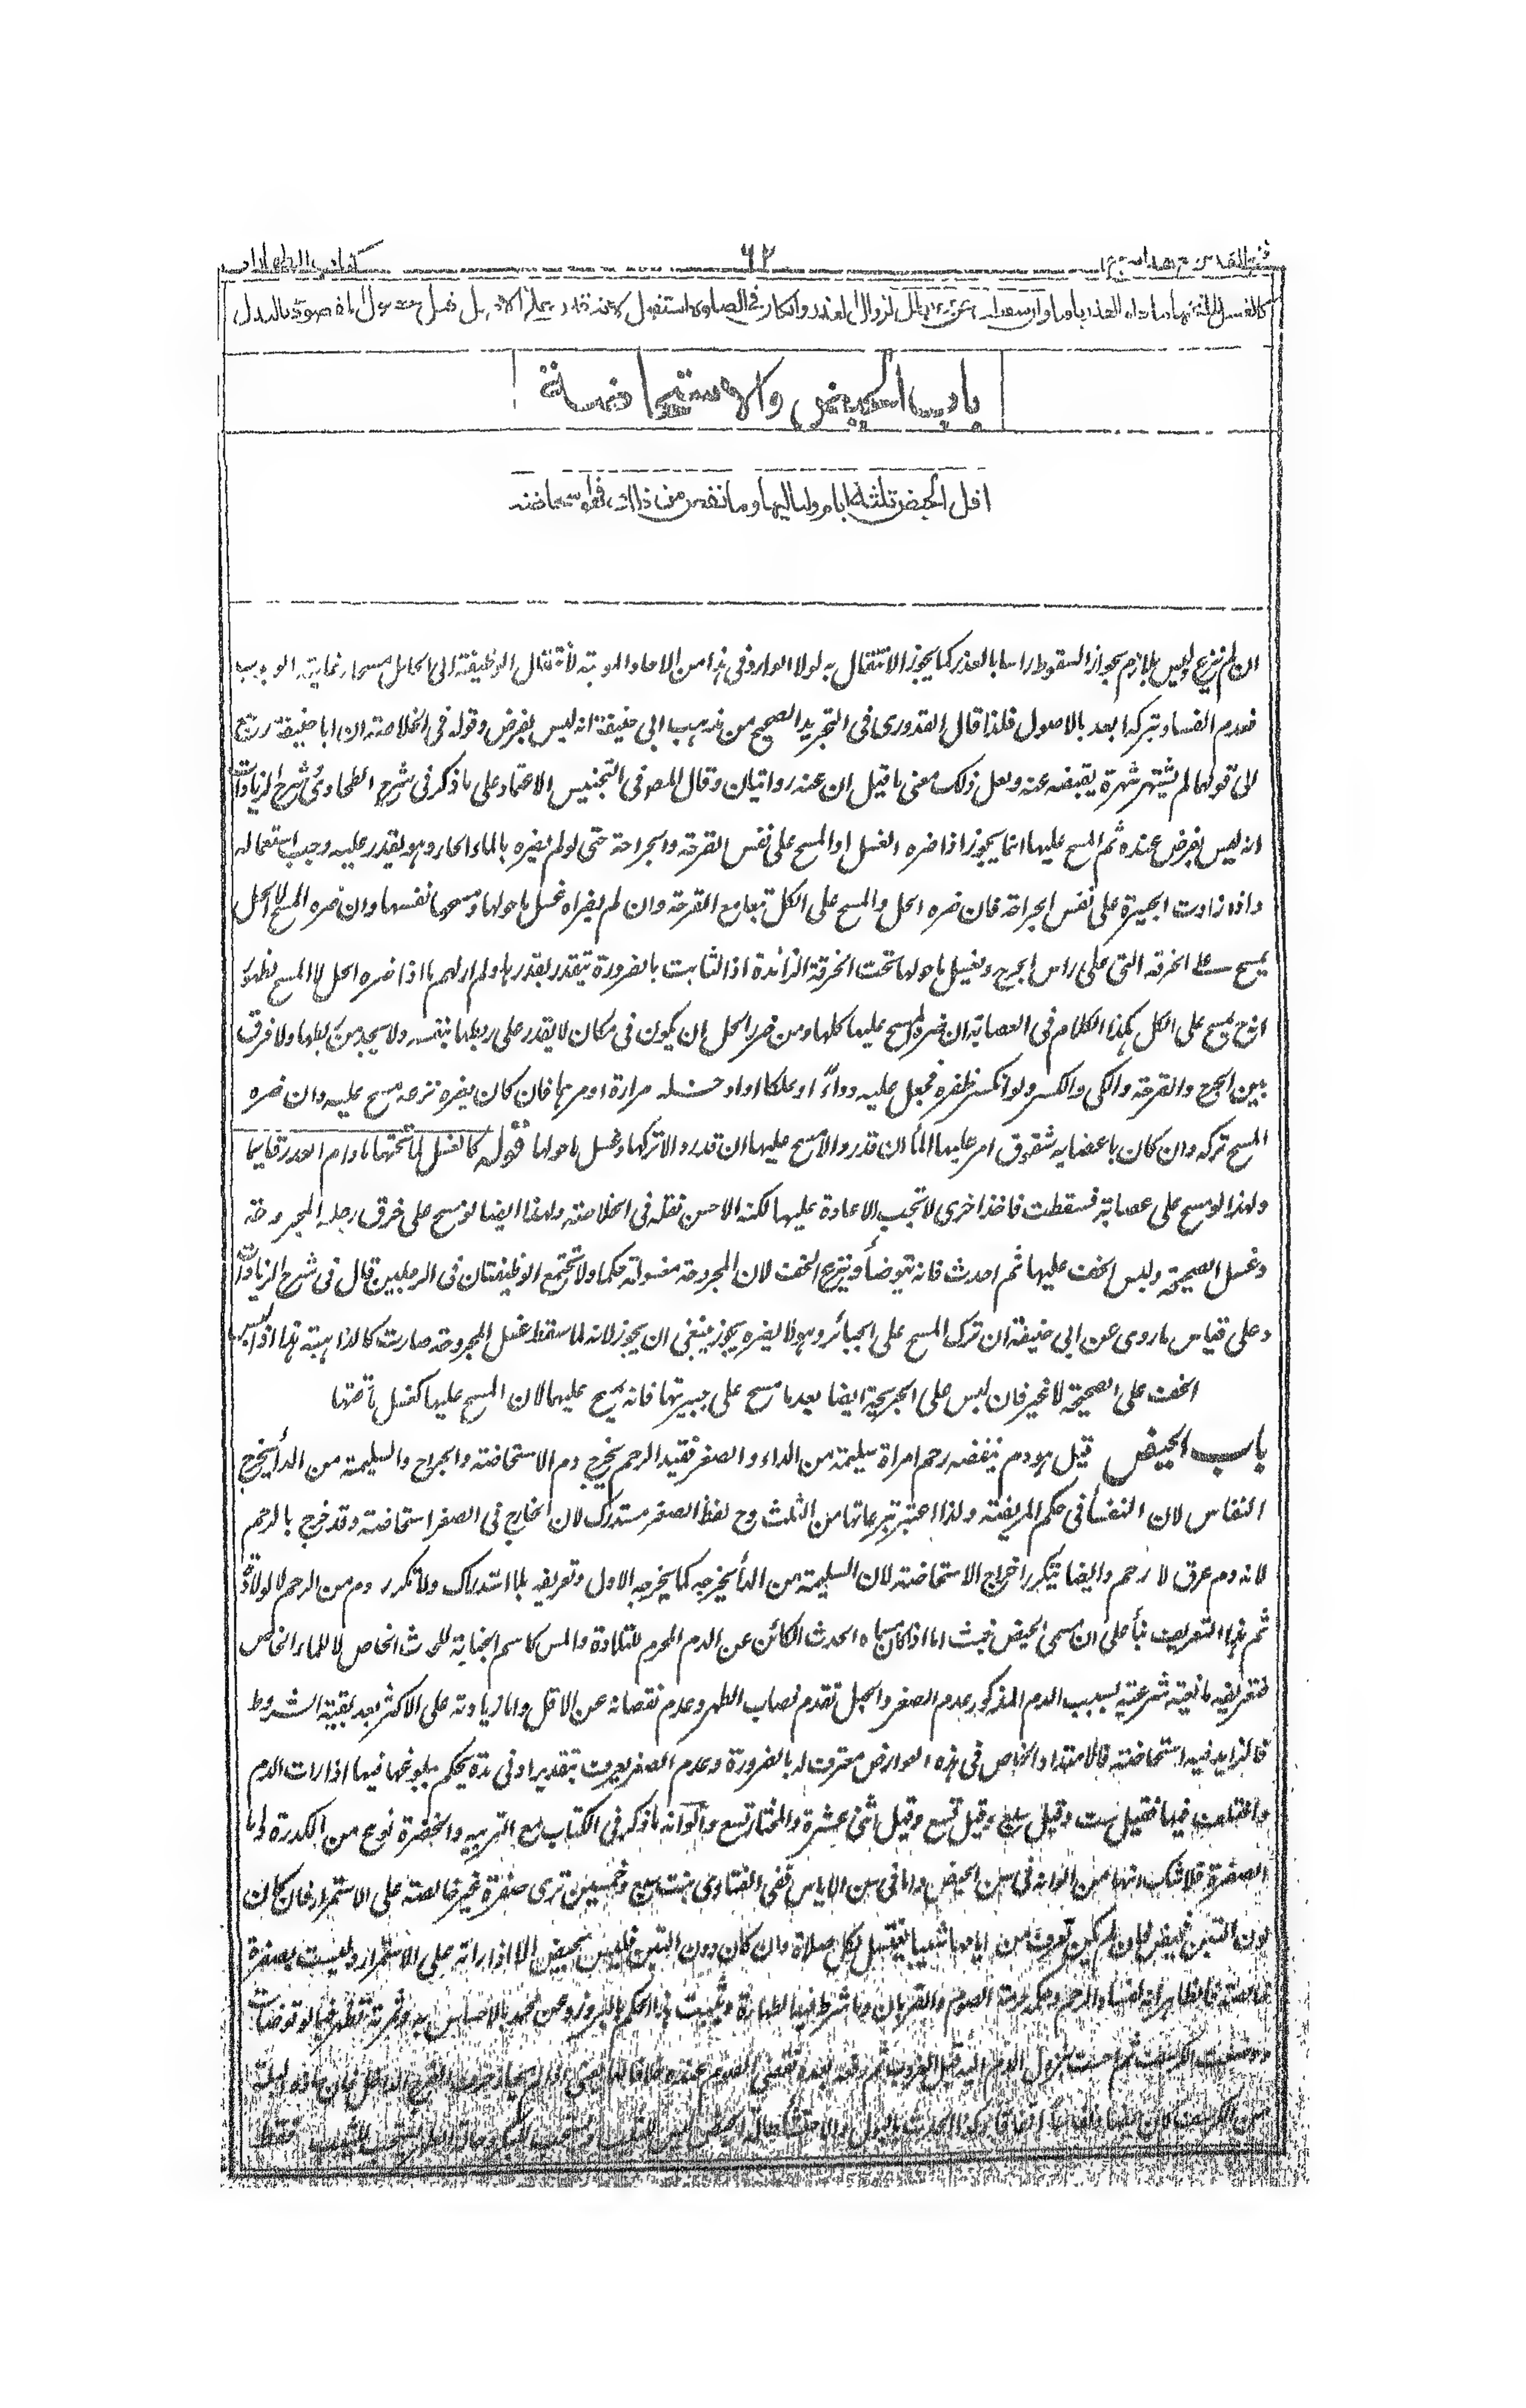 فتح القدير مع هداية ج ١
٦٢
كتاب الطهارات
كالغسل لما تحتها ما دام العذر باقيا وان سقطت عن برء بطل لزوال العذر وان كان فى الصلوة استقبل لانه قدر على الاصل قبل حصول المقصود بالبدل
باب الحيض والاستحاضة
اقل الحيض ثلثة ايام ولياليها وما نقص من ذلك فهو استحاضة
ان لم ينزع وليس بلازم بجواز السقوط راسا بالعذر كما يجوز الانتقال به لولا الوارد فى هذا من الاحاد الموجبة لانتقال الوظيفة الى الحائل مسحا غايته الوجوب
فعدم الفساد بتركه ابعد بالاصول فلذا قال القدورى فى التجريد الصحيح من مذهب ابى حنيفة انه ليس بفرض وقوله فى الخلاصة ان ابا حنيفة رجع
الى قولهما لم يشتهر شهرة نقيضه عنه ولعل ذلك معنى ما قيل ان عنه روايتان وقال المص فى التجنيس الاعتماد على ما ذكر فى شرح الطحاوى وشرح الزيادات
انه ليس بفرض عنده ثم المسح عليها انما يجوز اذا ضره الغسل او المسح على نفس القرحة والجراحة حتى لو لم يضره بالماء الحار وهو يقدر عليه وجب استعماله
واذا زادت الجبيرة على نفس الجراحة فان ضره الحل والمسح على الكل تبعا مع القرحة وان لم يضراه غسل ما حولها ومسحها نفسها وان ضره المسح لا الحل
يمسح على الخرقة التى على راس الجرح ويغسل ما حولها تحت الخرقة الزائدة اذ الثابت بالضرورة يتقدر بقدرها ولم ار لهم ما اذا ضره الحل لا المسح لظهور
انه ح يمسح على الكل بهذا الكلام فى العصابة ان ضره المسح عليها كلها ومن ضرر الحل ان يكون فى مكان لا يقدر على ربطها بنفسه ولا يجد من يربطها ولا فرق
بين الجرح والقرحة والكى والكسر ولو انكسر ظفره فجعل عليه دواءً او علكا او ادخله مرارة او مرهما فان كان يضره نزعه مسح عليه وان ضره
المسح تركه وان كان باعضايه شقوق امر عليها الماء ان قدر والا مسح عليها ان قدر والا تركها وغسل ما حولها قوله كالغسل لما تحتها ما دام العذر قايما
ولهذا لو مسح على عصابة فسقطت فاخذ اخرى لا تجب الاعادة عليها لكنه الاحسن نقله فى الخلاصة ولهذا ايضا لو مسح على خرق رجله المجروحة
وغسل الصحيحة ولبس الخف عليها ثم احدث فانه يتوضأ وينزع الخف لان المجروحة مغسولة حكما ولا تجتمع الوظيفتان فى الرجلين قال فى شرح الزيادات
وعلى قياس ما روى عن ابى حنيفة ان ترك المسح على الجبائر وهو لا يضره يجوز ينبغى ان يجوز لانه لما سقط غسل المجروحة صارت كالذاهبة هذا اذا لبس
الخف على الصحيحة لا غير فان لبس على الجريحة ايضا بعد ما مسح على جبيرتها فانه يمسح عليهما لان المسح عليها كغسل ما تحتها
باب الحيض قيل هو دم ينفضه رحم امراة سليمة من الداء والصغر فقيد الرحم يخرج دم الاستحاضة والجراح والسليمة من الداء يخرج
النفاس لان النفساء فى حكم المريضة ولذا اعتبر تبرعاتها من الثلث وح لفظ الصغر مستدرك لان الخارج فى الصغر استحاضة وقد خرج بالرحم
لانه دم عرق لا رحم وايضا يتكرر اخراج الاستحاضة لان السليمة من الداء يخرجه كما يخرجه الاول وتعريفه بلا استدراك ولا تكرر دم من الرحم لا لولادة
ثم هذا التعريف بناء على ان مسمى الحيض خبث اما اذا كان مسماه الحدث الكائن عن الدم المحرم للتلاوة والمس كاسم الجنابة للحدث الخاص لا للماء الخاص
فتعريفه مانعية شرعية بسبب الدم المذكور وعدم الصغر والحبل تقدم نصاب الطهر وعدم نقصانه عن الاقل واما زيادته على الاكثر بعد بقية الشروط
فالزايد فيه استحاضة فالامتداد الخاص فى هذه العوارض معرف له بالضرورة وعدم الصغر يعرف بتقدير ادنى مدة يحكم ببلوغها فيها اذا رات الدم
واختلف فيها فقيل ست وقيل سبع وقيل تسع وقيل اثنى عشرة والمختار تسع والوانه ما ذكر فى الكتاب مع التربية والخضرة نوع من الكدرة واما
الصفرة فلا شك انها من الوانه فى سن الحيض واما فى سن الاياس ففى الفتاوى بنت سبع وخمسين ترى صفرة غير خالصة على الاستمرار فان كان
لون التبن فحيض فان لم يكن تعرف من ايامها شيئا يغتسل لكل صلاة وان كان دون التبن فليس بحيض الا اذا راته على الاستمرار وليست بصفرة
خالصة فالظاهر انه لفساد الرحم وحكمه حرمة الصوم والقربان وما شرط فيه الطهارة ويثبت هذا الحكم بالبروز وعن محمد بالاحساس به وثمرته تظهر فيما لو توضات
ووضعت الكرسف ثم احست بنزول الدم اليه قبل الغروب ثم رفعته بعده تقضى الصوم عنده خلافا لهما يعنى اذا لم يحاذ حرف الفرج الداخل فان حاذاه البلة
من الكرسف كان حيضا